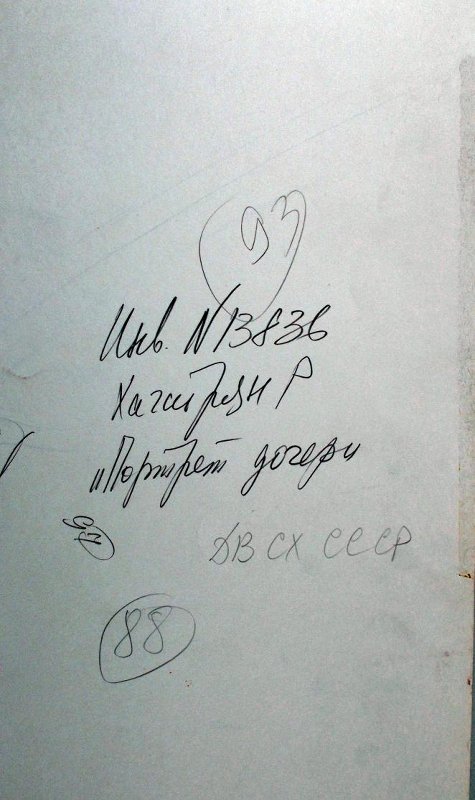 93
Инв. N 13836
Хачатрян Р
"Портрет дочери
ДВ СХ СССР
88